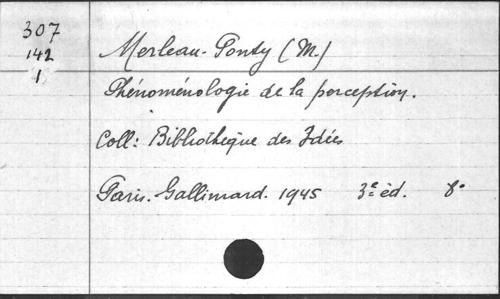 307
142
1
Merleau-Ponty (M.)
Phénoménologie de la perception.
Coll: Bibliothèque des Idées
Paris. Gallimard. 1945 3e éd. 8°